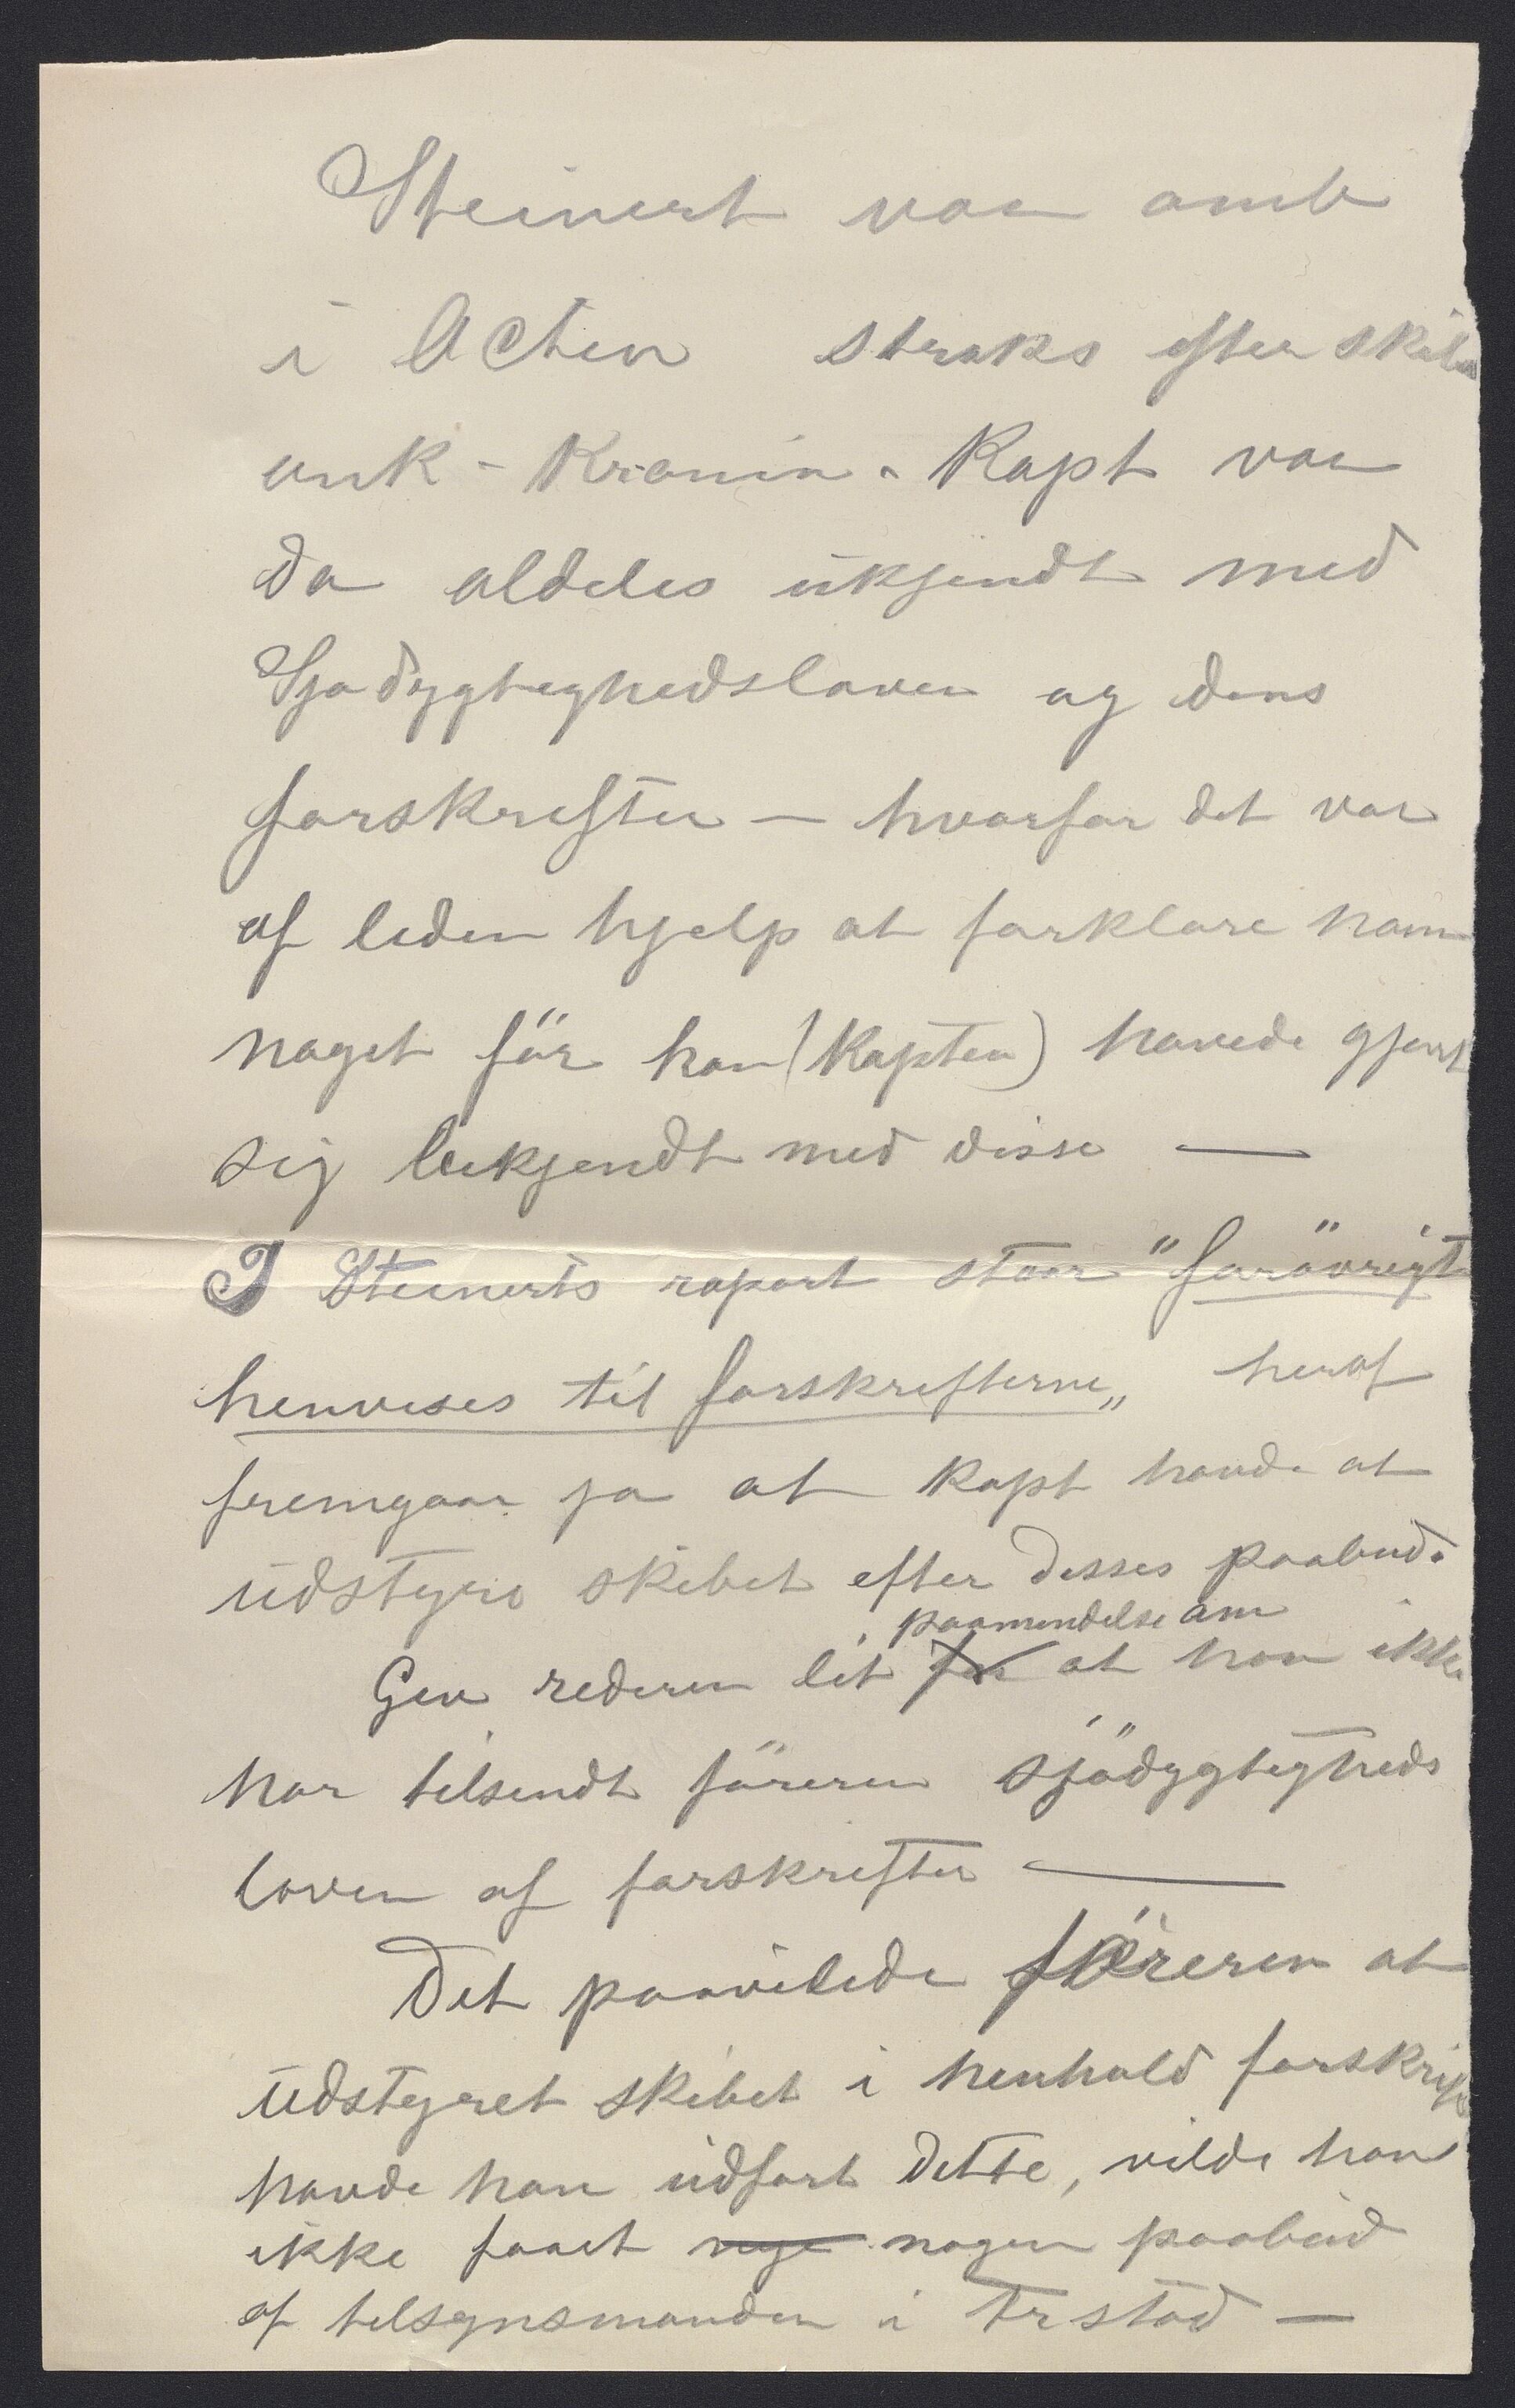 Steinert var omb
i Acten straks efter skib
ank - Kronin. Kapt var
da aldeles ukjendt med
Sjodygtighedsloven og dens
forskrifter — hvorfor det var
af liden hjelp at forklare ham
noget för han (Kapten) havede gjort
sig bekjendt med disse —
I Steinerts raport staar "forövrigt
henvises til forskrifterne„ heraf
fremgaar ja at Kapt havde at
udstyre skibet efter disses paabud.
paamindelse om
Giv rederen lit for at han ikke
har tilsendt föreren sjödygtigheds
loven af forskrifter —
Det paavilede föreren at
udstyret skibet i henhold forskrif
havde han udfort dette, vilde han
ikke faaet noge nogen paabud
af tilsynsmanden i Frstad —